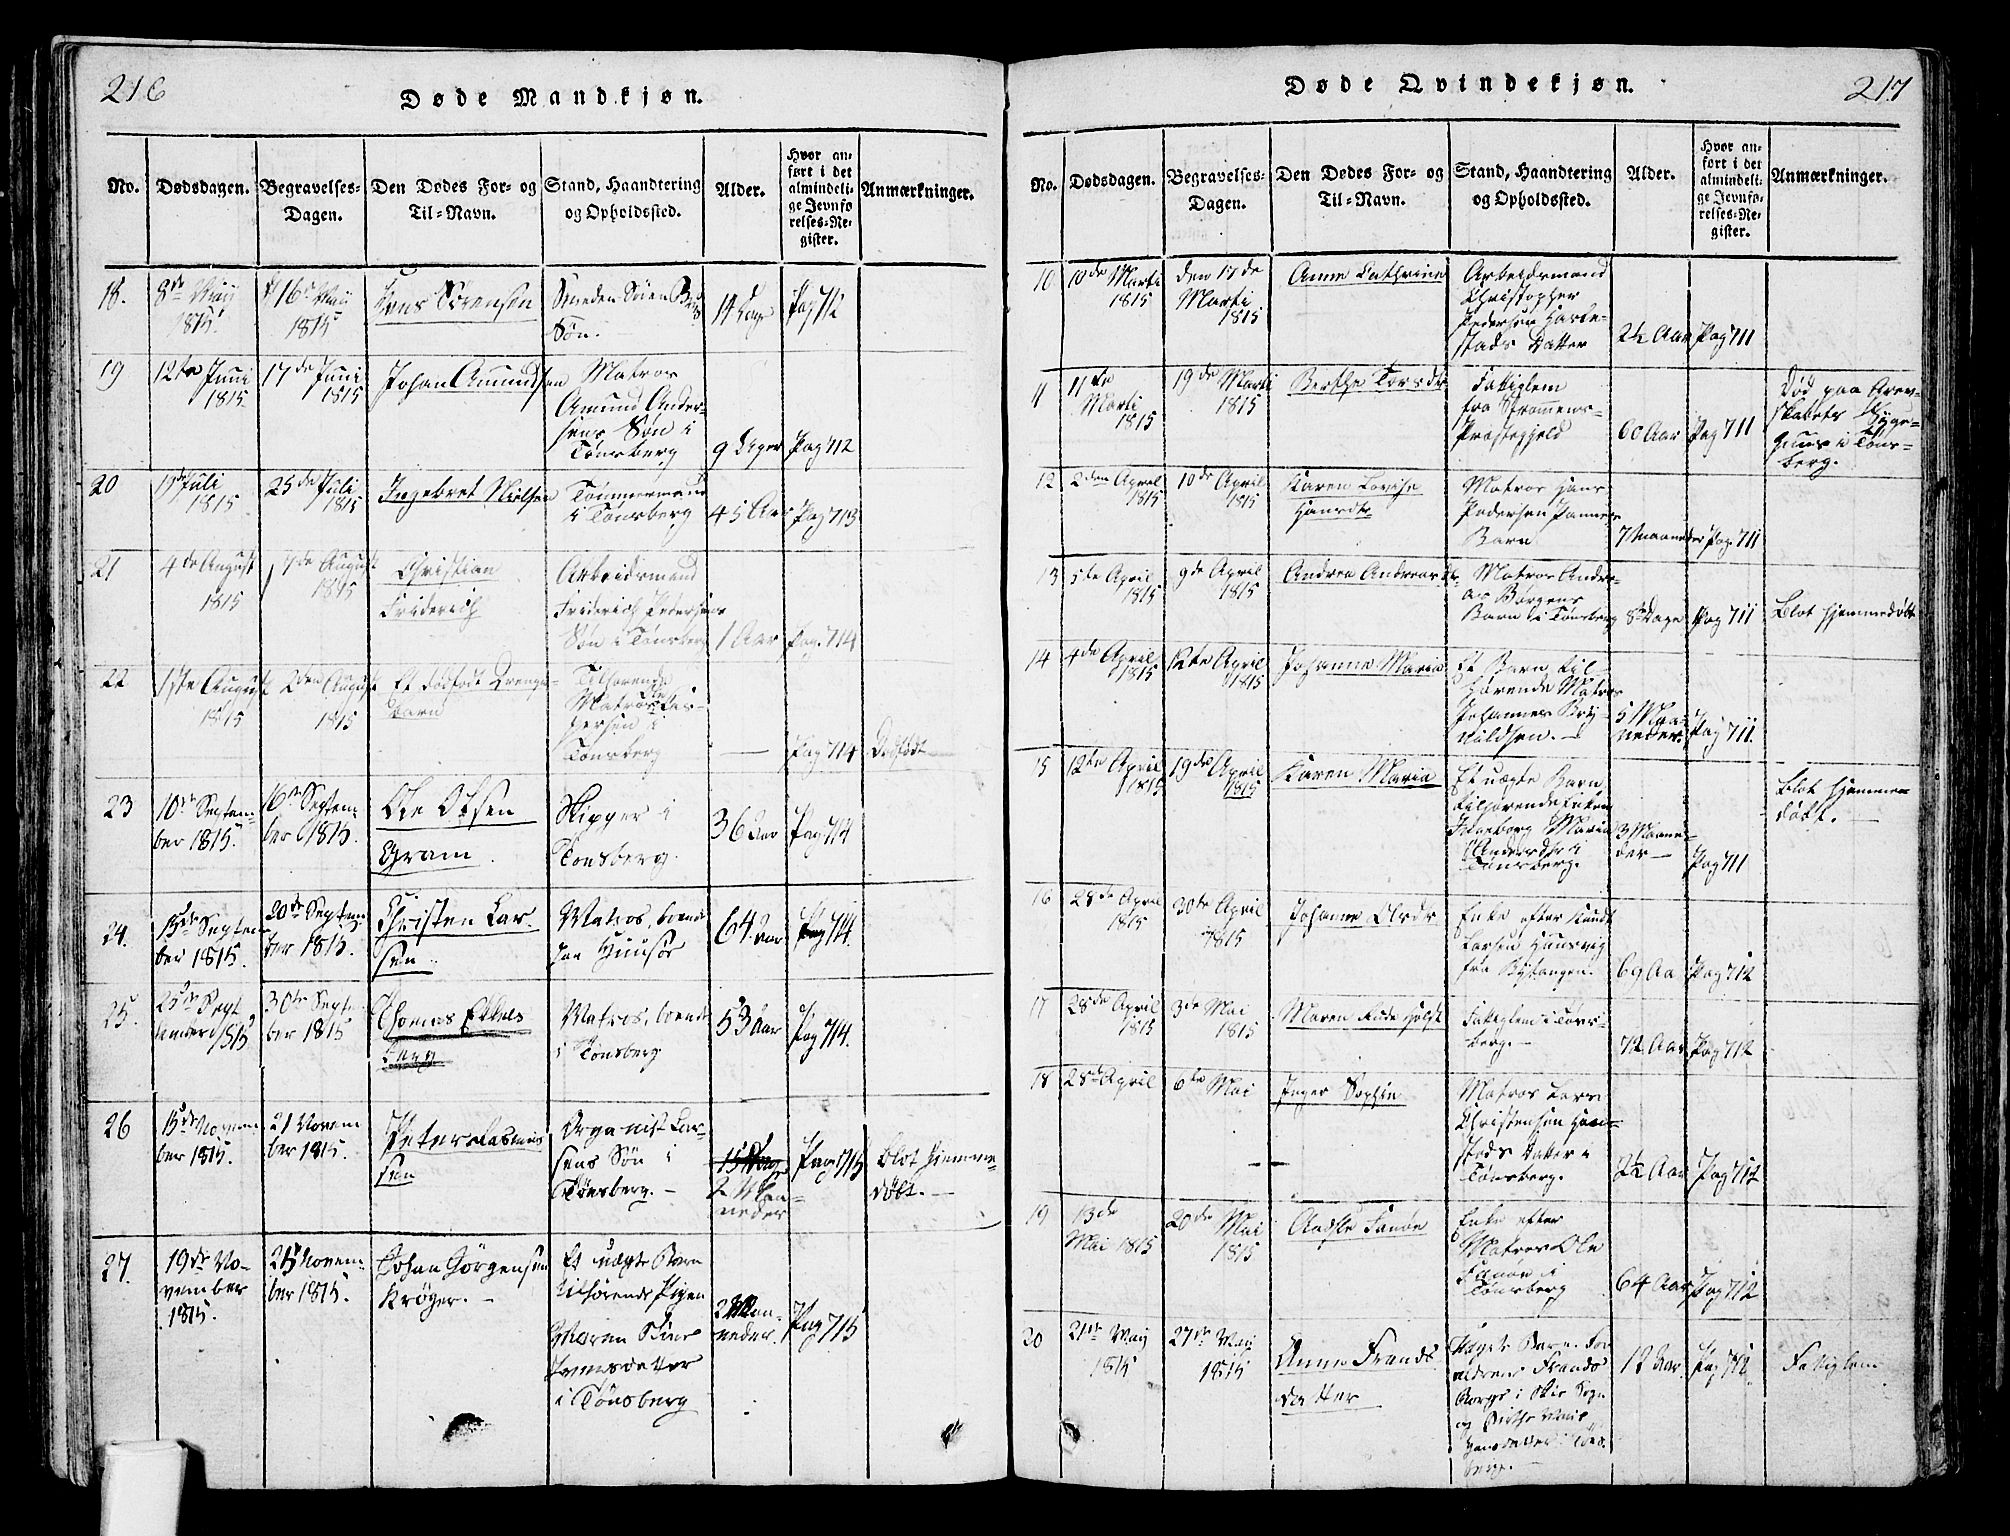 216
Døde Mandkjøn.
No.
Dødsdagen.
Begravelses-
Dagen.
Den Dødes For- og
Til-Navn.
Stand, Haandtering
og Opholdssted.
Alder.
Hvor an-
ført i det
almindeli-
ge Jevnfø
relses-Re-
gister.
Anmærkninger.
18.
8de May
1815
16 May
1815
Sørensen
Smeden Søren
Søn.
14 Dage
Pag 712
19
12te Juni
1815
17de Juni
1815
Johan Amundsen
Matros
Amund Ander-
sens Søn i
Tønsberg
9 Uger
Pag 712
20
Juli
1815
25de Juli
1815
Ingebret Nielsen
Tømmermand
i Tønsberg
45 Aar
Pag 713
21
4de August
1815
7de August
1815
Christian
Friderich
Arbeidsmand
Friderich Pedersens
Søn i Tønsberg
1 Aar
Pag. 714
22
1ste August
1815
2den August
1815
Et dødfødt Drenge-
barn
Tilhørende
Matros Ole Cas-
persen i
Tønsberg
—
Pag 714
Dødfødt
23
10de Septem-
ber 1815.
16de Septem-
ber 1815.
Ole Olsen
Gram.
Skipper i
Tønsberg.
36 Aar
Pag 714
24.
15de Septem-
ber 1815.
20de Septem
ber 1815.
Christen Lar-
sen
Matros, boende
64 Aar
Pag 714.
25.
25de Sept
ember 1815
30te Septem-
ber 1815
Thomas
Berg
Matros, boende
i Tønsberg
53 Aar
Pag 714.
26
15de Novem-
ber 1815.
21 Novem
ber 1815.
Peter Rasmus
sen
Organist Lar-
sens Søn i
Tønsberg. —
2 Maa-
neder
Pag 715
Blot hjemme-
døbt. —
27.
19de No-
vember
1815.
25 Novem-
ber 1815.
Johan Jørgensen
Krøyer. —
Et uægte Barn
tilhørende Pigen
Maren
Jensdatter
i Tønsberg
2 Maa-
neder.
Pag 715
Døde Qvindekjøn.
217
No.
Dødsdagen.
Begravelses-
Dagen.
Den Dødes For- og
Til-Navn.
Stand, Haandtering
og Opholdssted.
Alder.
Hvor an-
ført i det
almindeli-
ge Jevnfø-
relses-Re-
gister.
Anmærkninger.
10
10de Marti
1815
den 17de
Marti
1815
Anne Cathrine
Arbeidsmand
Christopher
Pedersen Harke-
stads Datter
2½ Aar
Pag 711
11
11te
Marti
1815
19de Marti
1815
Berthe Torsdtr
Fattiglem
fra Strømmens-
Præstegjeld
60 Aar
Pag 711
Død paa Arve-
skabets Syge-
huus i Tøns-
berg.
12
2den April
1815
10de April
1815
Karen Lovise
Hansdtr
Matros Hans
Pedersen
Barn
7 Maaneder
Pag. 711
13
5te April
1815
9de April
1815
Andrea Andreasdtr
Matros Andre-
as Børgens
Barn i Tønsberg
8 Dage
Pag 711
Blot hjemmedøbt
14
4de April
1815
12te April
1815
Johanne Maria
Et Barn til-
hørende Matros
Johannes Bry-
nildsen. —
5 Maa-
neder.
Pag 711.
15
12te April
1815
19de April
1815
Karen Maria
Et uægte Barn
tilhørende Enken
Ingeborg Maria
Andersdtr i
Tønsberg.
3 Maane-
der —
Pag 711
Blot hjemme-
døbt. —
16
28de April
1815
30te April
1815
Johanne Olsdtr
Enke efter Knudt
Larsen
fra Bytangen.
69 Aar
Pag 712
17
28de April
1815
3de Mai
1815
Maren
Fattiglem i Tøns-
berg. —
72 Aar
Pag 712
18
28de April
6te Mai
Inger Sophie
Matros Lars
Christensen
Datter i
Tønsberg.
2½ Aar
Pag 712
19
13de
Mai 1815
20de Mai
1815
Fanøe
Enke efter
Matros Ole
Fanøe i
Tønsberg
64 Aar
Pag 712
20
21de May
1815
27de May
1815
Anne Frands
datter
Uægte Barn. For
ældrene Frands
12 Aar.
Pag 712.
Fattiglem